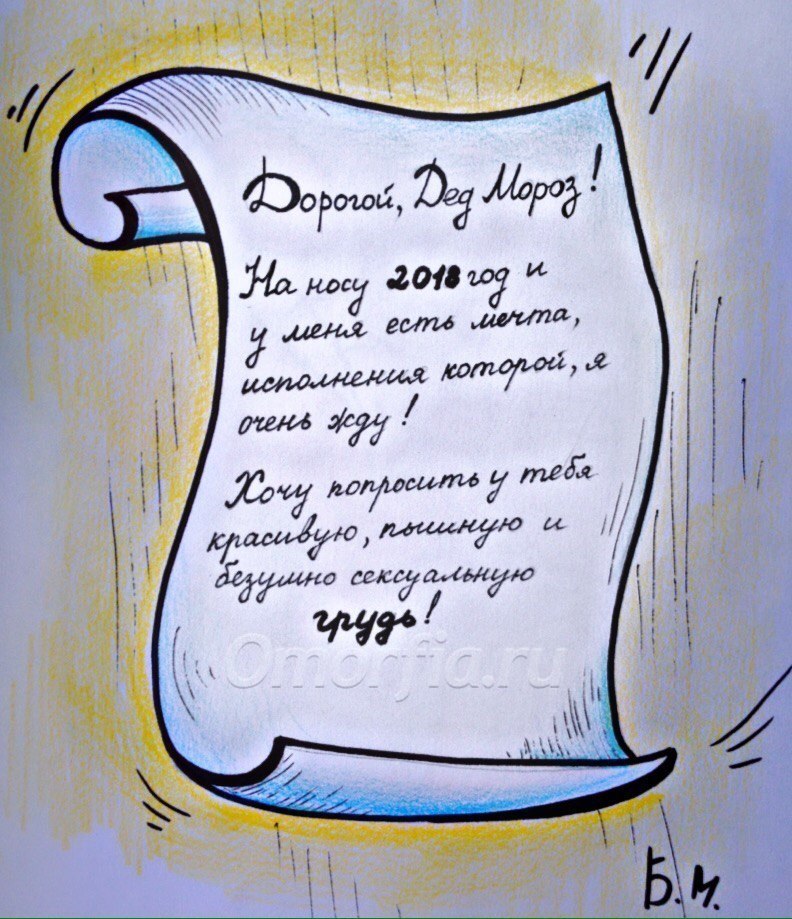 Дорогой, Дед Мороз!
На носу 2018 год и
у меня есть мечта,
исполнения которой, я
очень жду!
Хочу попросить у тебя
красивую, пышную и
безумно сексуальную
грудь!
Omorfia.ru
Б.М.